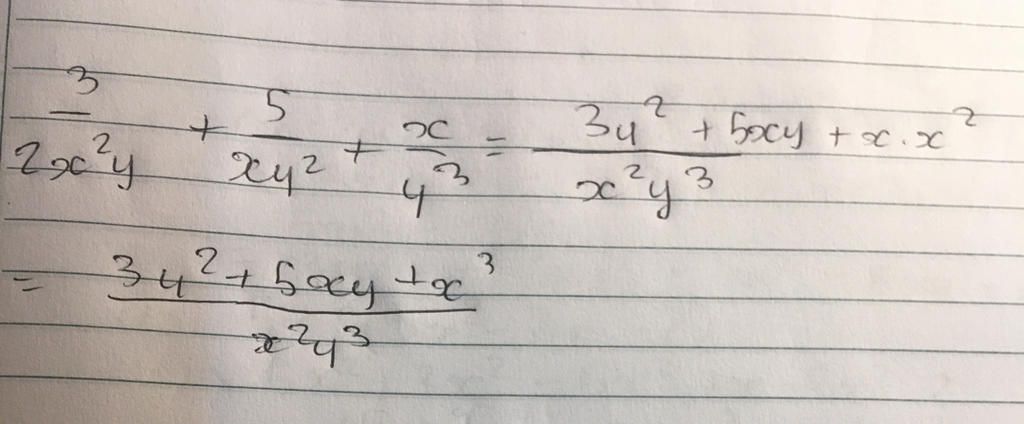 3/(2x²y) + 5/(xy²) + x/y³ = (3y² + 5xy + x.x²)/(x²y³)
= (3y² + 5xy + x³)/(x²y³)